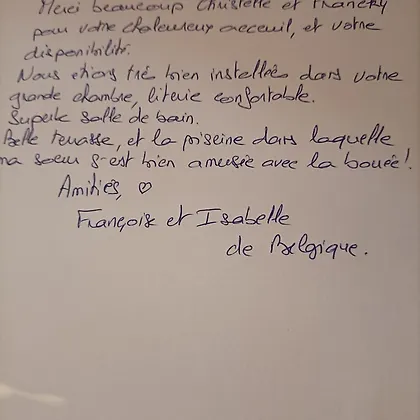 Merci beaucoup Christelle et Francky
pour votre chaleureux acceuil, et votre
disponibilité.
Nous étions très bien installées dans votre
grande chambre, literie confortable.
Superbe salle de bain.
Belle terrasse, et la piseine dans laquelle
ma soeur s'est bien amusée avec la bouée!
Amitiés, ♡
Françoise et Isabelle
de Belgique.